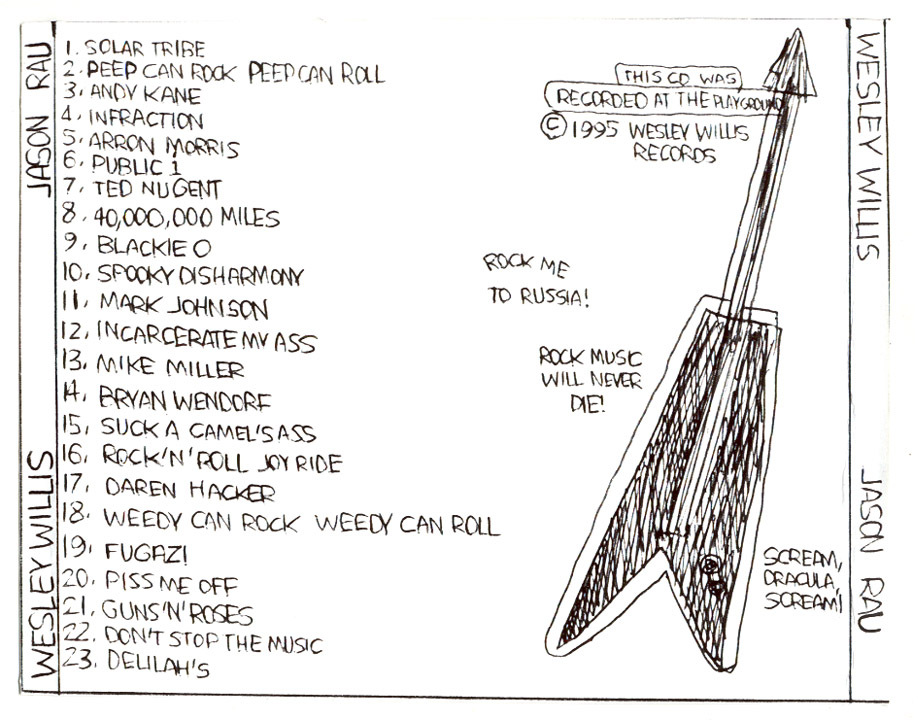 JASON RAU
WESLEY WILLIS
1. SOLAR TRIBE
2. PEEP CAN ROCK PEEP CAN ROLL
3. ANDY KANE
4. INFRACTION
5. ARRON MORRIS
6. PUBLIC 1
7. TED NUGENT
8. 40,000,000 MILES
9. BLACKIE O
10. SPOOKY DISHARMONY
11. MARK JOHNSON
12. INCARCERATE MY ASS
13. MIKE MILLER
14. BRYAN WENDORF
15. SUCK A CAMEL'S ASS
16. ROCK'N'ROLL JOY RIDE
17. DAREN HACKER
18. WEEDY CAN ROCK WEEDY CAN ROLL
19. FUGAZI
20. PISS ME OFF
21. GUNS'N'ROSES
22. DON'T STOP THE MUSIC
23. DELILAH'S
THIS CD WAS
RECORDED AT THE PLAYGROUND
© 1995 WESLEY WILLIS
RECORDS
ROCK ME
TO RUSSIA!
ROCK MUSIC
WILL NEVER
DIE!
SCREAM,
DRACULA,
SCREAM!
WESLEY WILLIS
JASON RAU